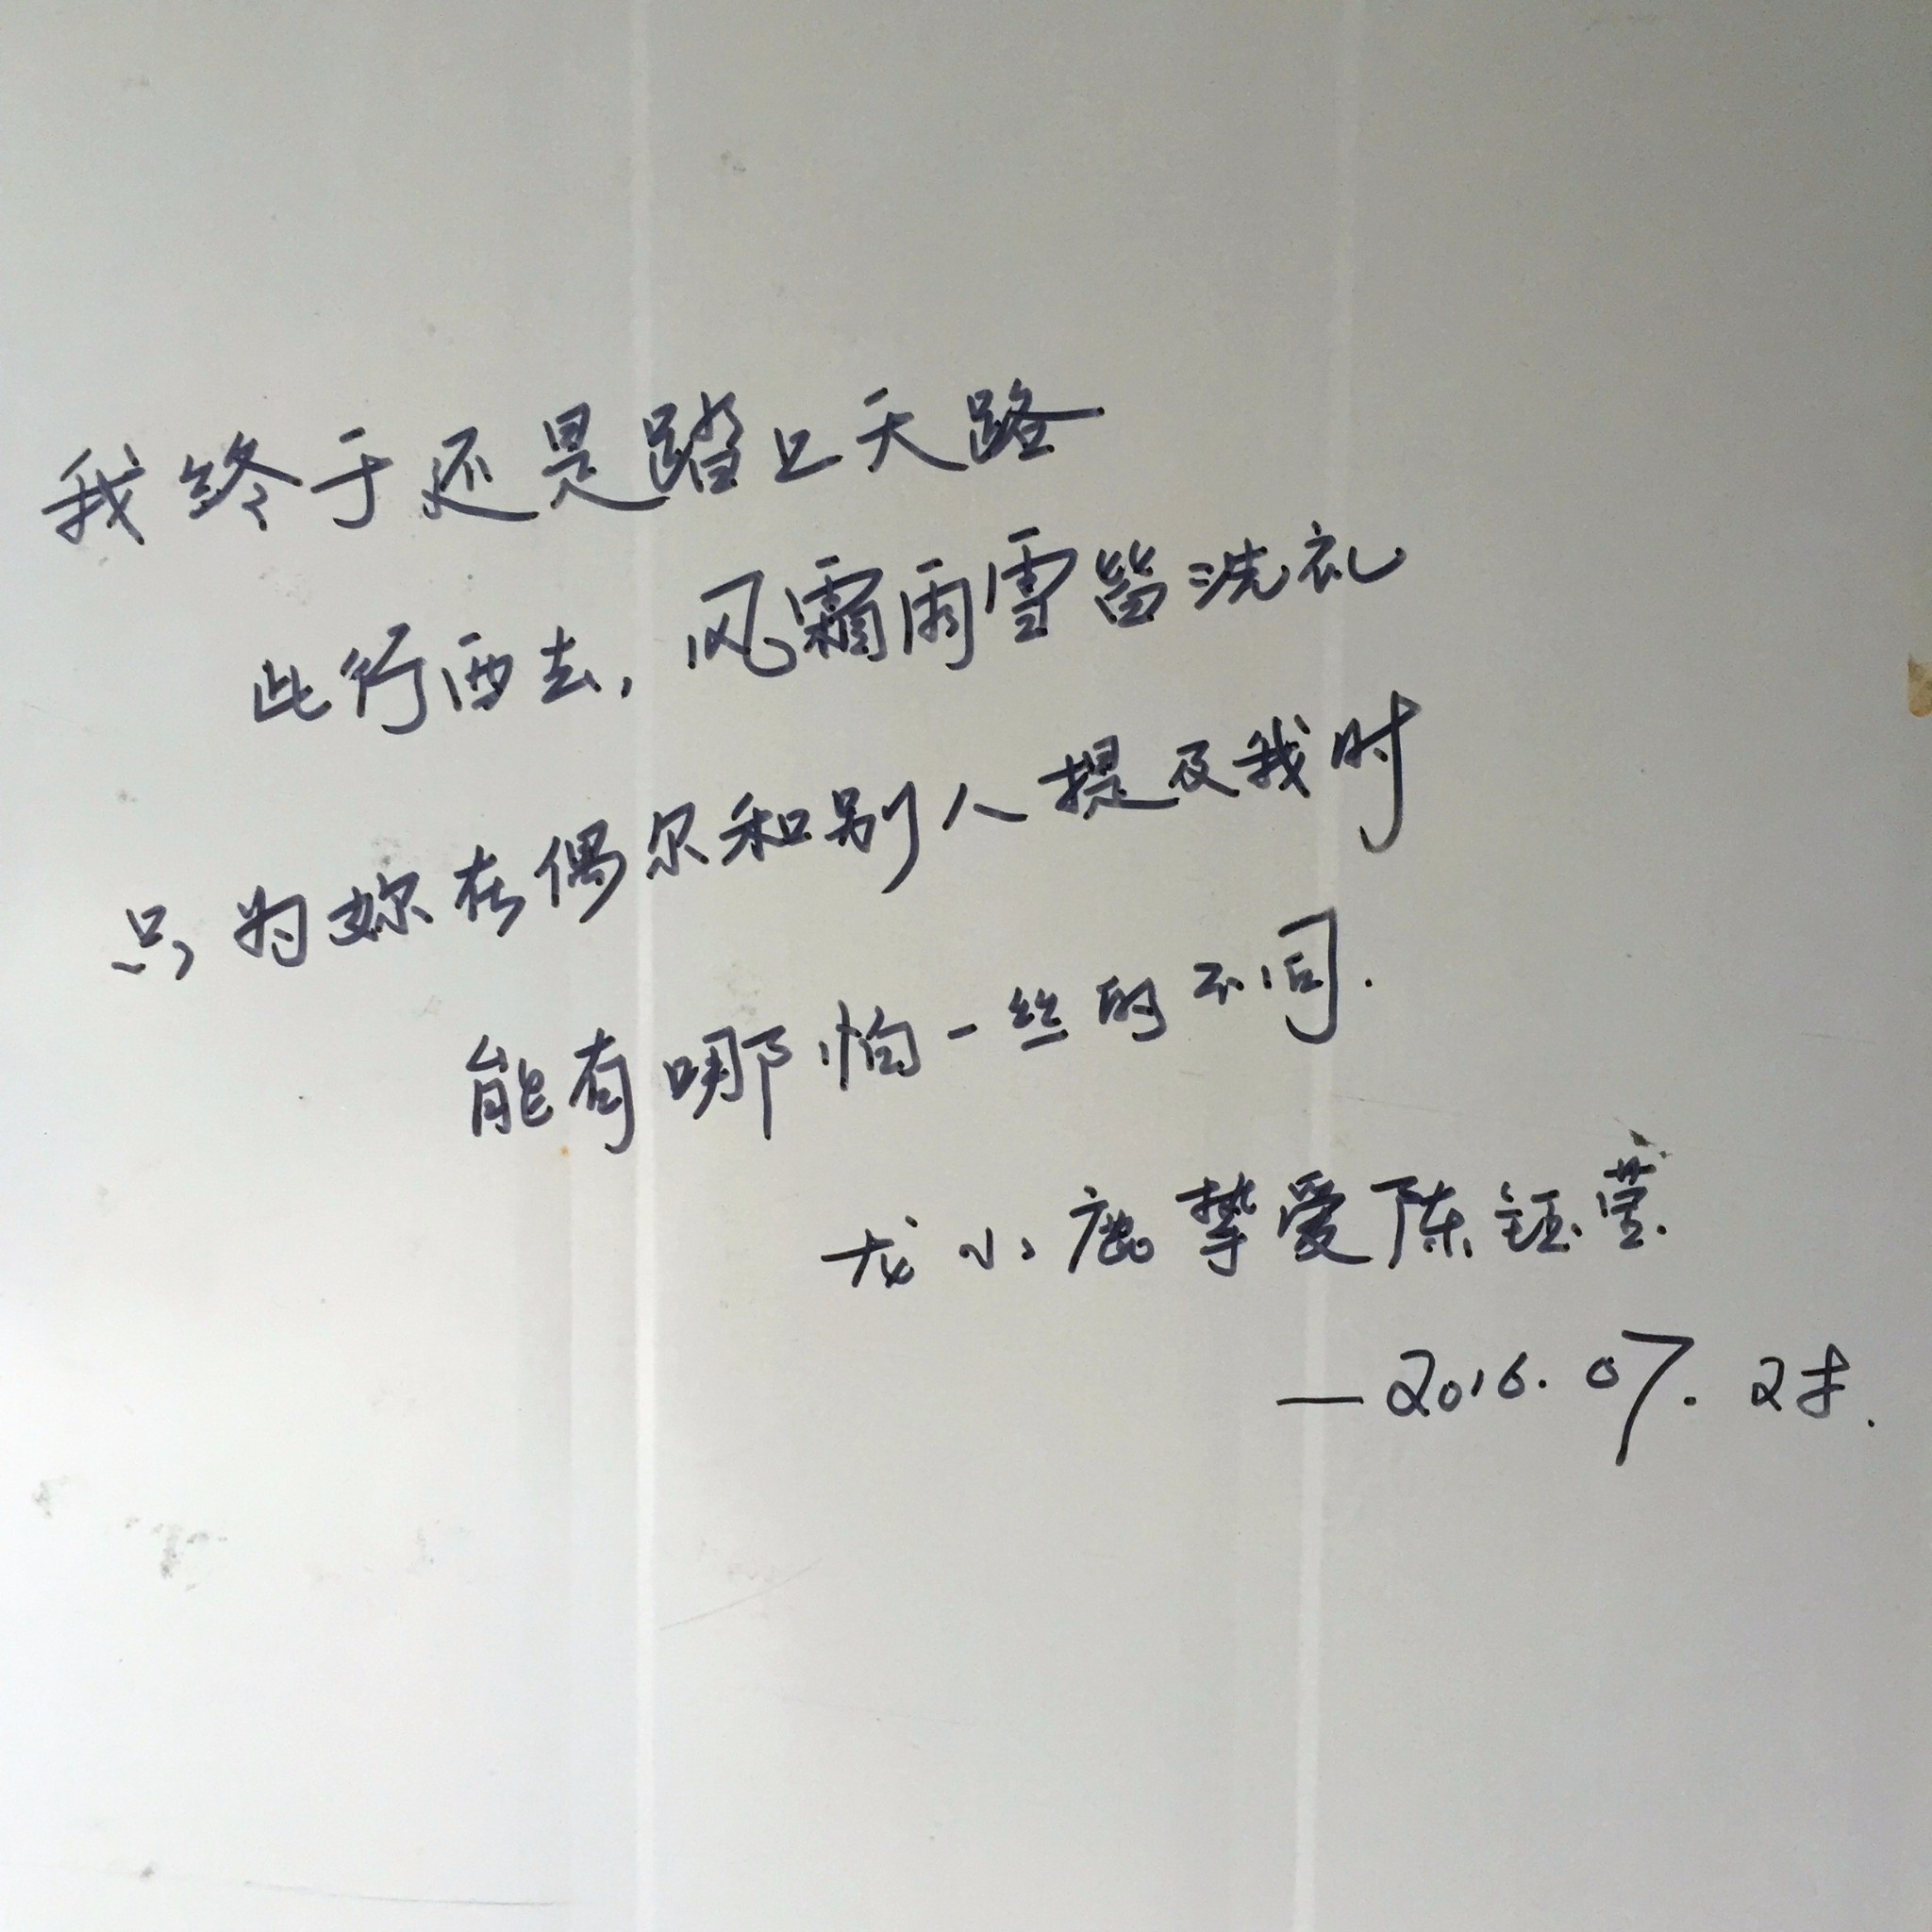 我终于还是踏上天路
此行西去,风霜雨雪皆洗礼
只为妳在偶尔和别人提及我时
能有哪怕一丝的不同.
龙小鹿挚爱陈钰莹
—2016.07.28.